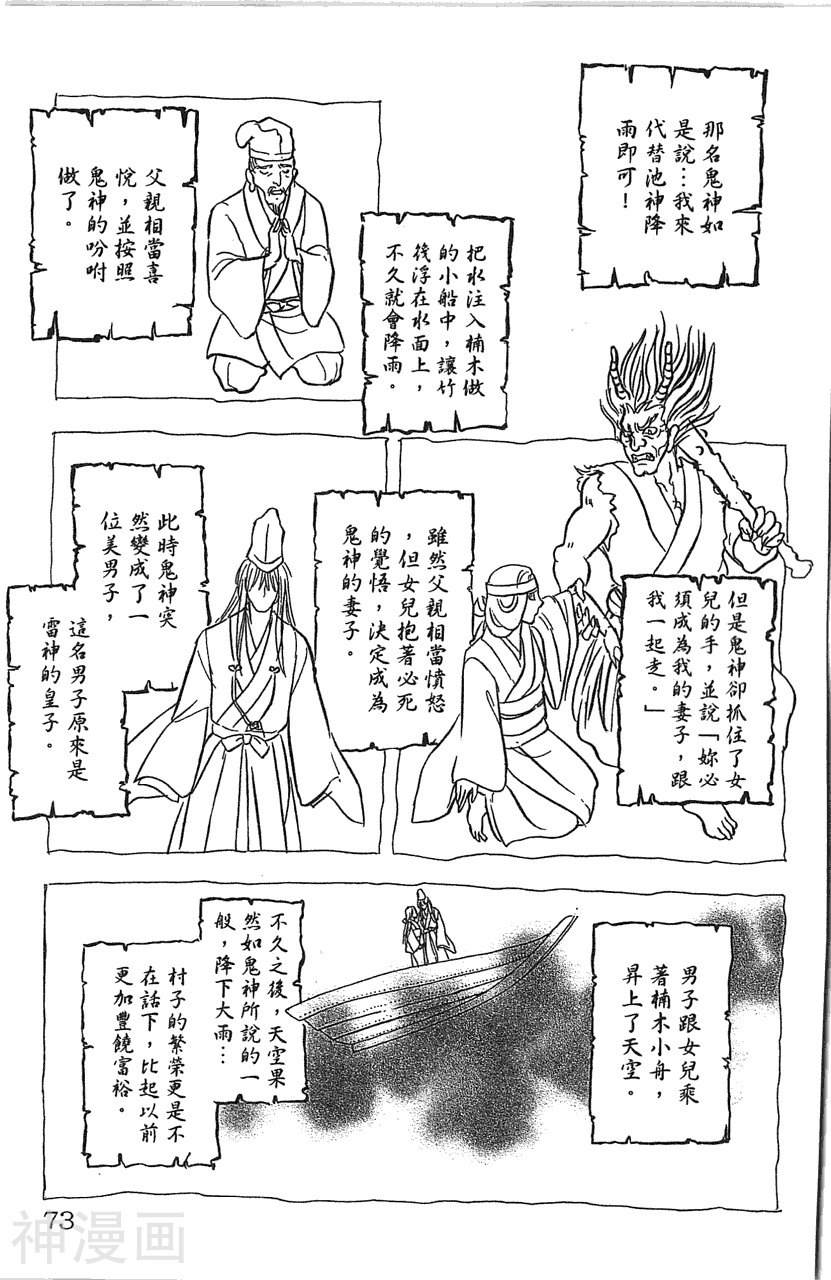 那名鬼神如
是說…我來
代替池神降
雨即可！
把水注入楠木做
的小船中，讓竹
後浮在水面上，
不久就會降雨。
父親相當喜
悅，並按照
鬼神的吩咐
做了。
但是鬼神卻抓住了女
兒的手，並說「妳必
須成為我的妻子，跟
我一起走。」
雖然父親相當憤怒
，但女兒抱著必死
的覺悟，決定成為
鬼神的妻子。
此時鬼神突
然變成了一
位美男子，
這名男子原來是
雷神的皇子。
男子跟女兒乘
著楠木小舟，
昇上了天空。
不久之後，天空果
然如鬼神所說的一
般，降下大雨…
村子的繁榮更是不
在話下，比起以前
更加豐饒富裕。
73
神漫画